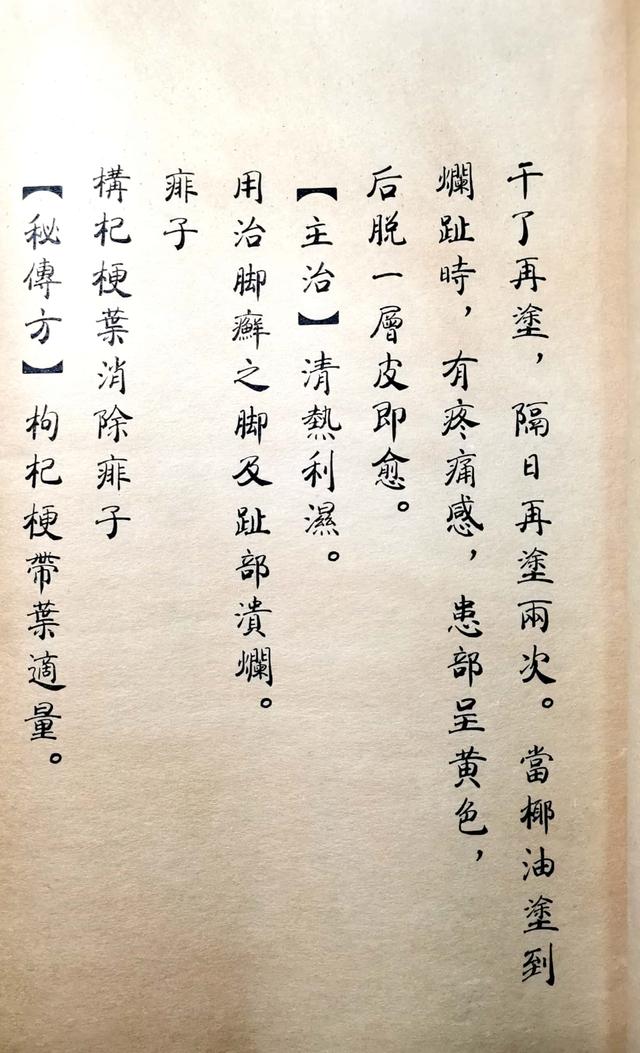 干了再塗，隔日再塗兩次。當椰油塗到
爛趾時，有疼痛感，患部呈黄色，
后脱一層皮即愈。
【主治】清熱利濕。
用治脚癬之脚及趾部潰爛。
痱子
構杞梗葉消除痱子
【秘傳方】枸杞梗帶葉適量。